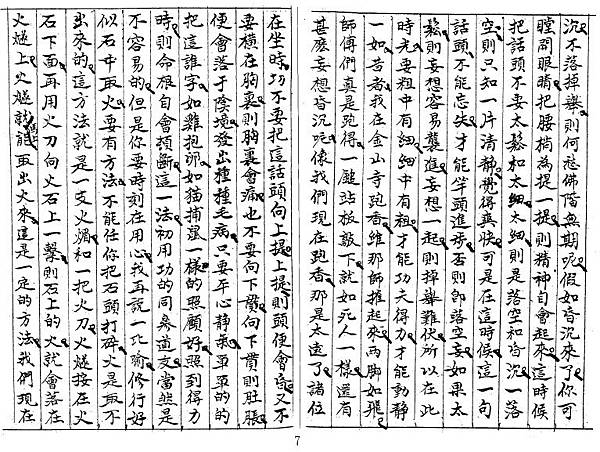 沉不落掉舉則何愁佛階無期呢假如昏沉來了你可
瞠開眼睛把腰稍為提一提則精神自會起來這時候
把話頭不要太鬆和太細太細則是落空和昏沉一落
空則只知一片清靜覺得爽快可是在這時候這一句
話頭不能忘失才能竿頭進步否則即落空妄如果太
鬆則妄想容易襲進妄想一起則掉舉難伏所以在此
時光要粗中有細細中有粗才能功夫得力才能動靜
一如昔者我在金山寺跑香維那師推起來兩脚如飛
師傅們真是跑得一聽站板敲下就如死人一樣還有
甚麼妄想昏沉呢像我們現在跑香那是太遠了諸位
在坐時功不要把這話頭向上提上提則頭便會昏又不
要橫在胸裏則胸裏會痛也不要向下貫向下貫則肚脹
便會落于陰境發出種種毛病只要平心靜氣單單的的
把這誰字如雞抱卵如貓捕鼠一樣的照顧好照到得力
時則命根自會頓斷這一法初用功的同參道友當然是
不容易的但是你要時刻在用心我再說一比喻修行好
似石中取火要有方法不能任你把石頭打碎火是取不
出來的這方法就是一支火煝和一把火刀火煝按在火
石下面再用火刀向火石上一擊則石上的火就會落在
火煝上火煝就馬能取出火來這是一定的方法我們現在
7